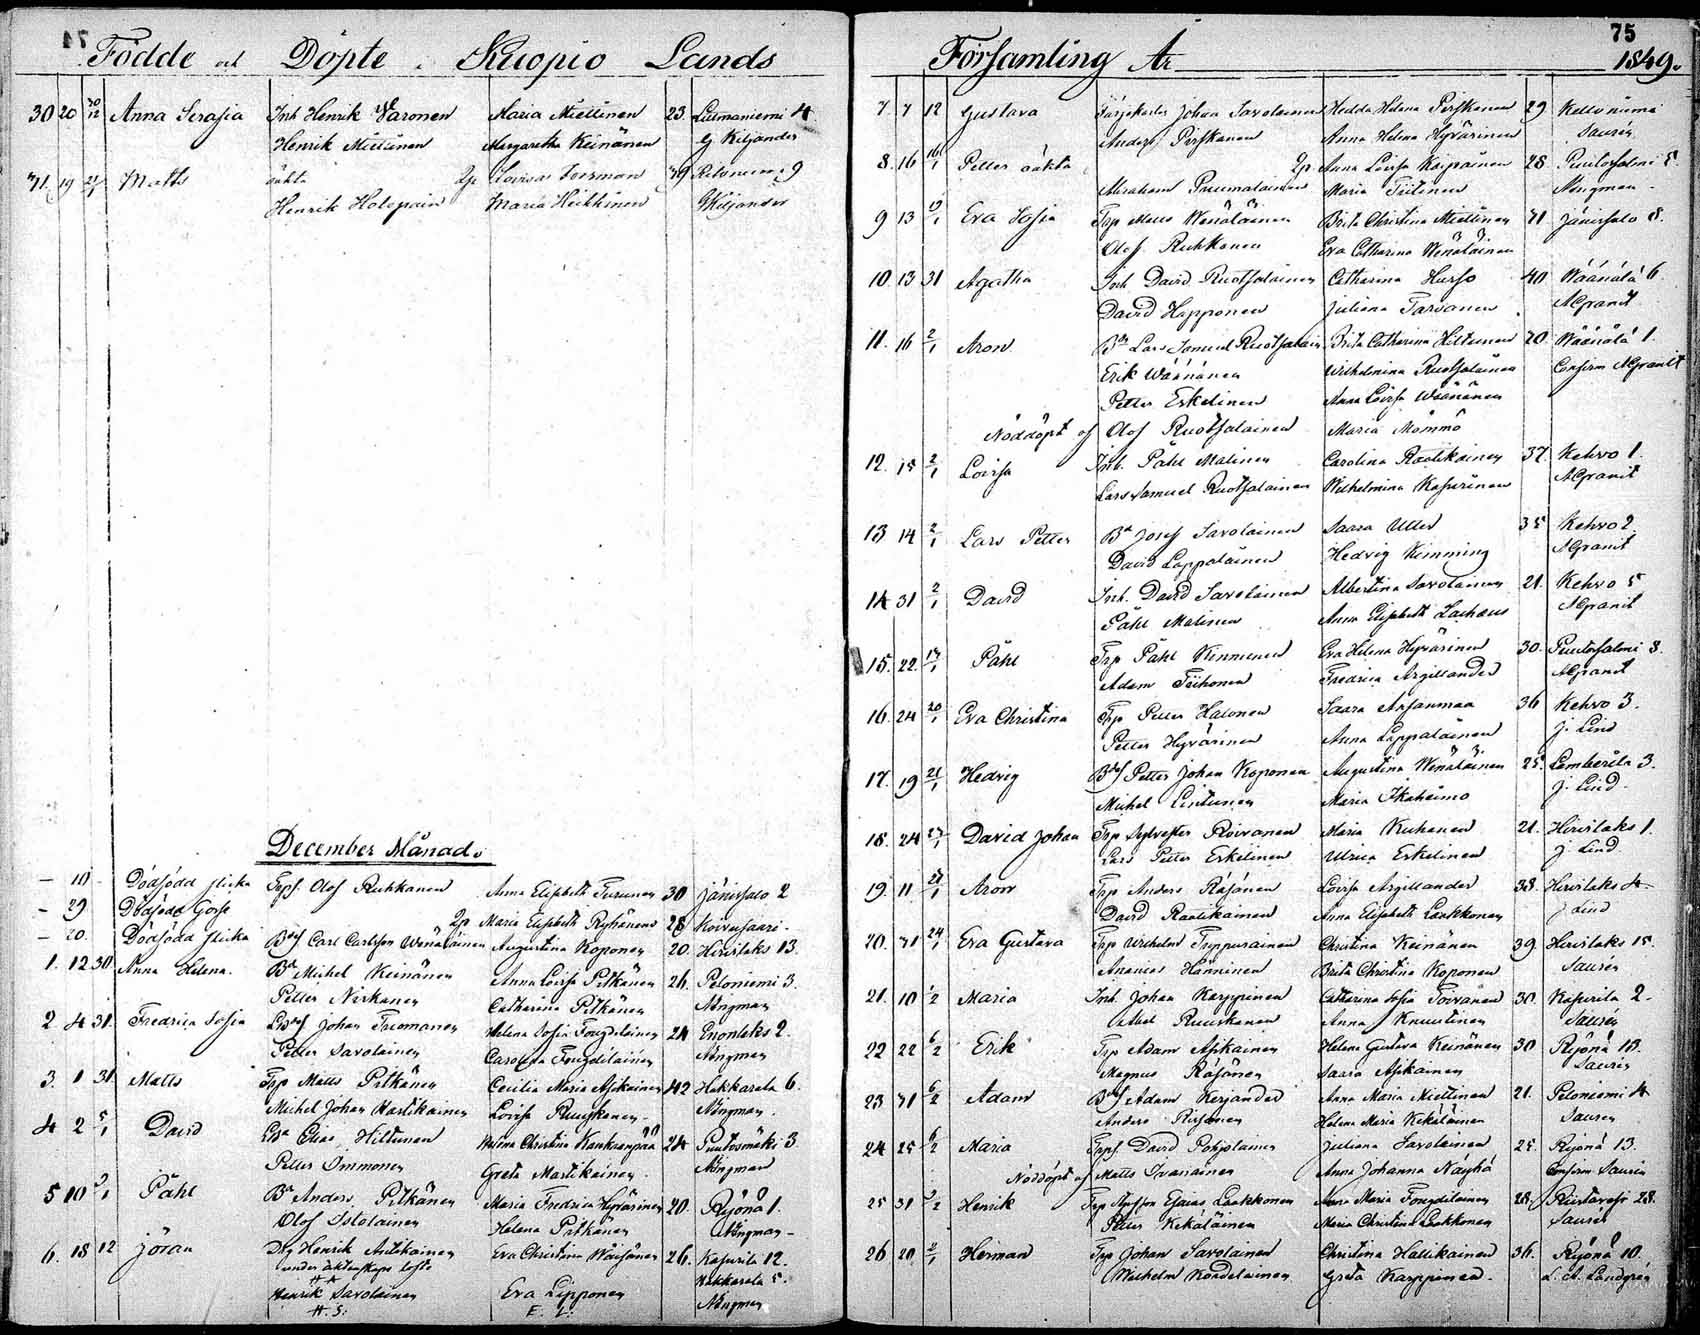 74
Födde och Döpte i Kuopio Lands
30 20 30/12 Anna Serafia Inh Henrik Waronen Maria Miettinen 23 Litmaniemi 4
Henrik Miettinen Margaretha Keinänen G Kiljander
31 19 21/1 Matts oäkta 2p Lovisa 39 9
Henrik Holopain Maria Heikkinen G Kiljander
December Månad.
– 10 – Dödfödd flicka Trpf. Olof Ruhkanen Anna Elisabeth Turunen 30 Jänissalo 2
– 29 Dödfödd Gosse 2p Maria Elisabeth Ryhänen 28 Koivusaari –
– 20. Dödfödd flicka Bdsf Carl Carlsson Wenäläinen Augustina Koponen 20. Hirvilaks 13.
1. 12 30 Anna Helena. Bd Michel Keinänen Anna Lovisa Pitkänen 26. Peloniemi 3.
Petter Niskanen Catharina Pitkänen Nängman
2 4 31. Fredrica Sofia Bdsf Johan Tuomanen Helena Sofia Tengdelainen 24 Enonlaks 2.
Petter Savolainen Carolina Tengdelainen Nängman
3. 1 31. Matts Trp Matts Pitkänen Cecilia Maria Asikainen 42 Hakkarala 6.
Michel Johan Martikainen Lovisa Ruuskanen – Nängman.
4 2 5/1 David Ld Elias Hiltunen Christina Kankaanpää 24 Puutosmäki 3
Petter Immonen Greta Martikainen Nängman
5 10 5/1 Påhl Bd Anders Pitkänen Maria Fredrica Hyvärinen 20. Ryönä 1.
Olof Istolainen Helena Pitkänen Nängman –
6. 18 12 Jöran Drg Henrik Antikainen Eva Christina Wäisänen 26. Kasurila 12.
under äktenskaps löfte Hakkarala 5.
Henrik Savolainen Eva Lipponen Nängman
H. S: E. L:
75
Församling År 1849.
7. 7 12 Gustava Färjekarlen Johan Savolainen Hedda Helena Pirskanen 29 Kelloniemi
Anders Pirskanen Anna Helena Hyvärinen Saurén
8. 16 16/1 Petter oäkta 2p Anna Lovisa Kuipainen 28 Puutosalmi 5.
Abraham Puumalainen Maria Tiitinen Nängman –
9 13 19/1 Eva Sofia Trp Matts Wenäläinen Brita Christina Miettinen 41 Jänissalo 8.
Olof Ruhkanen Eva Catharina Wenäläinen
10. 13 31 Agatha Inh David Ruotsalainen Catharina Husso 40 Wäänälä 6
David Happonen Juliana Tarvainen AGranit
11. 16 2/1 Aron Bd Lars Samuel Ruotsalain Brita Catharina Hiltunen 20. Wäänälä 1.
Erik Wäänänen Wilhelmina Ruotsalainen Confirm AGranit
Petter Eskelinen Anna Lovisa Wäänänen
Nöddöpt af Olof Ruotsalainen Maria Mömmö
12. 15 2/1 Lovisa Inh. Påhl Malinen Carolina Raatikainen 37. Kehvo 1.
Lars Samuel Ruotsalainen Wilhelmina Kasurinen AGranit
13 14 2/1 Lars Petter Bd Josef Savolainen Saara 35 Kehvo 2.
David Lappalainen Hedvig Kemming AGranit
14 31 2/1 David Inh. David Savolainen Albertina Savolainen 21. Kehvo 5
Påhl Malinen Anna Elisabeth AGranit
15. 22. 14/1 Påhl Trp Påhl Kinnunen Eva Helena Hyvärinen 30. Puutosalmi 3.
Adam Tiihonen Fredrica Argillander AGranit
16. 24 20/1 Eva Christina Trp Petter Halonen Saara 36 Kehvo 3.
Petter Hyvärinen Anna Lappalainen J. Lind
17. 19 21/1 Hedvig Bdsf Petter Johan Koponen Augustina Wenäläinen 25. Lamberila 3.
Michel Lintunen Maria Ikäheimo J. Lind.
18. 24 27/1 David Johan Trp Sylvester Roivanen Maria Kuhanen 21. Hirvilaks 1.
Lars Petter Eskelinen Ulrica Eskelinen J. Lind
19. 11. 27/1 Aron Trp Anders Räsänen Lovisa Argillander 38. Hirvilaks 4 –
David Raatikainen Anna Elisabeth Laakkonen J Lind
20. 31 24/1 Eva Gustava Trp Wilhelm Tuppurainen Christina Keinänen 39 Hirvilaks 15.
Ananias Hänninen Brita Christina Koponen Saurén
21. 10 1/2 Maria Inh. Johan Karppinen Catharina Sofia Toivanen 30. Kasurila 2 –
Abel Ruuskanen Anna Knuutinen Saurén
22 22 6/2 Erik Trp Adam Asikainen Helena Gustava Keinänen 30 Ryönä 13.
Magnus Räsänen Saara Asikainen Saurén
23 31 6/2 Adam Bdsf Adam Kerjander Anna Maria Miettinen 21. Peloniemi 4
Anders Rissanen Helena Maria Kekäläinen Saurén
24 25 6/2 Maria Trpf. David Pohjolainen Juliana Savolainen 25. Ryönä 13.
Nöddöpt af Matts Ivanainen Anna Johanna Näyhä Confirm Saurén
25 31 3/2 Henrik Trp Elaias Laakkonen Anna Maria Tengdelainen 28. Riistavesi 28.
Petter Kekäläinen Maria Christina Laakkonen Saurén
26 20 2/1 Herman Trp Johan Savolainen Christina Hallikainen 36. Ryönä 10.
Wilhelm Kondelainen Greta Karppinen. L. A. Landgrén